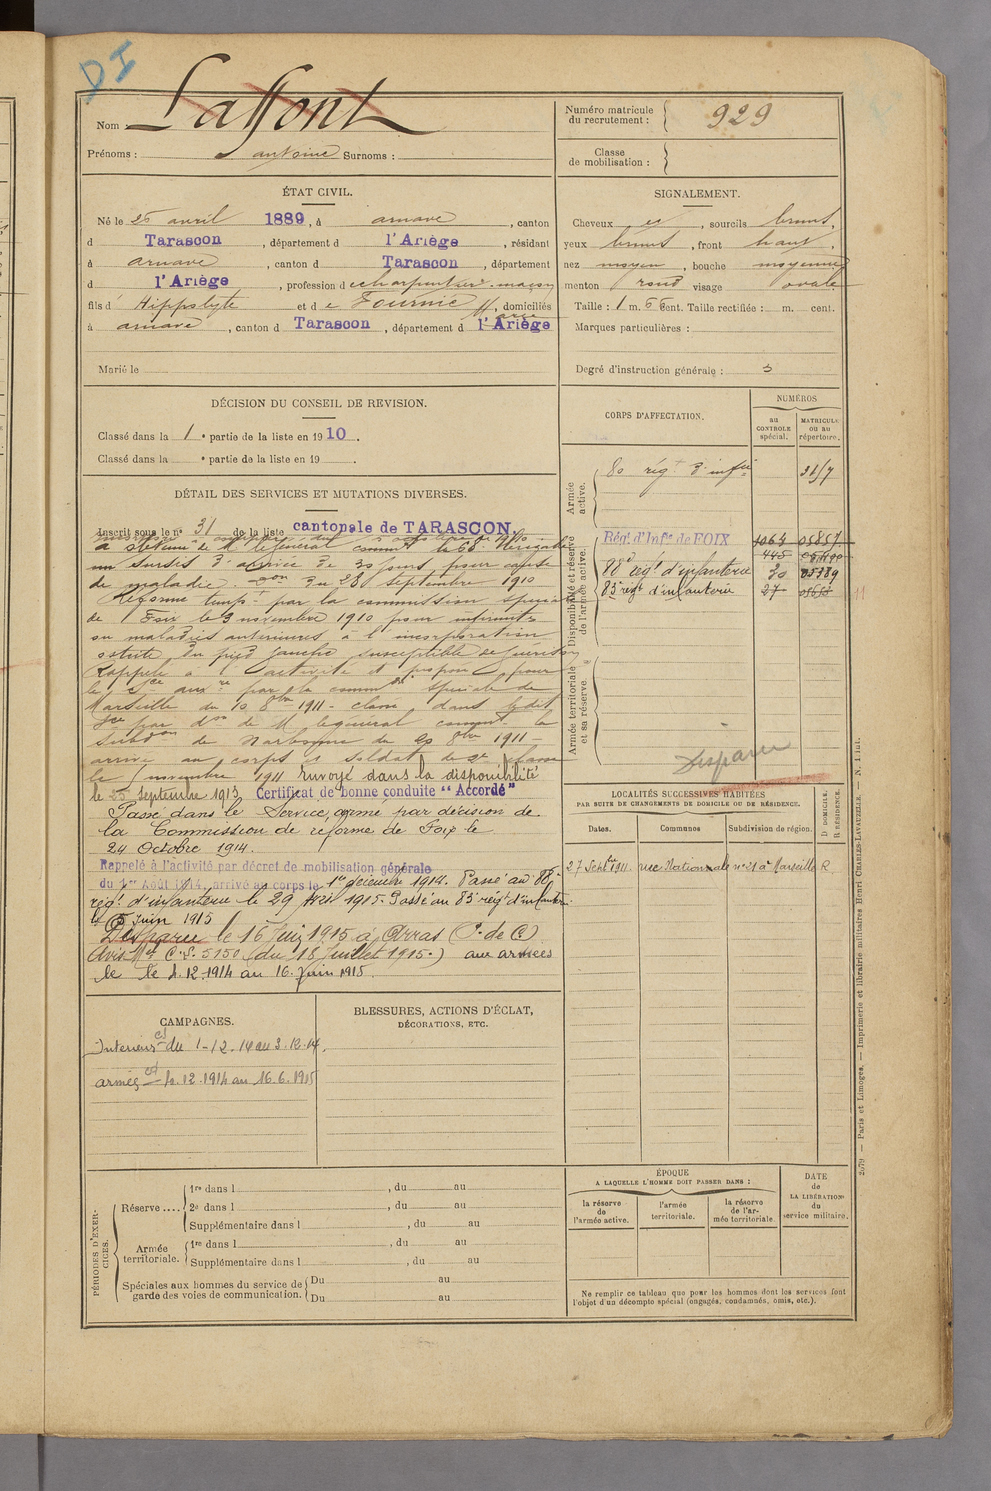 DI
Nom : Laffont
Prénoms : antoine Surnoms :
Numéro matricule du recrutement : 929
Classe de mobilisation :
ÉTAT CIVIL.
Né le 25 avril 1889, à arnave, canton
d Tarascon, département d l'Ariège, résidant
à arnave, canton d Tarascon, département
d l'Ariège, profession de charpentier maçon
fils d' Hippolyte et d e Fournié Marie, domiciliés
à arnave, canton d Tarascon, département d l'Ariège
Marié le
SIGNALEMENT.
Cheveux et, sourcils bruns,
yeux bruns, front haut,
nez moyen, bouche moyenne
menton rond visage ovale
Taille : 1 m. 66 cent. Taille rectifiée : m. cent.
Marques particulières :
Degré d'instruction générale : 3
DÉCISION DU CONSEIL DE REVISION.
Classé dans la 1e partie de la liste en 1910.
Classé dans la e partie de la liste en 19 .
DÉTAIL DES SERVICES ET MUTATIONS DIVERSES.
Inscrit sous le n° 31 de la liste cantonale de TARASCON.
a obtenu de M le général commt la
un sursis d'arrivée de 30 jours, pour cause
de maladie. Don du 28 septembre 1910
Réformé tempt par la commission spéciale
de Foix le 3 novembre 1910 pour infirmités
ou maladies antérieures à l'incorporation
ostéite du pied gauche, susceptible de guérison
Rappelé à l'activité et proposé pour
le Sce auxre par la common spéciale de
Marseille du 10 8bre 1911 - classé dans ledit
Sce par don de M le général commt la
Subdon de Narbonne du 20 8bre 1911 -
arrivé au corps et soldat de 2e classe
le novembre 1911 Envoyé dans la disponibilité
le 25 Septembre 1913 Certificat de bonne conduite "Accordé"
Passé dans le Service armé par décision de
la Commission de réforme de Foix le
24 Octobre 1914.
Rappelé à l'activité par décret de mobilisation générale
du 1er Août 1914, arrivé au corps le 1er décembre 1914. Passé au 88e
régt d'infanterie le 29 Avril 1915. Passé au 83e régt d'infanterie
le 5 Juin 1915
Disparu le 16 Juin 1915 à Arras (P. de C.)
Avis Mel C.S. 5150 (du 18 Juillet 1915.) aux armées
le 4.12.1914 au 16 Juin 1915.
CORPS D'AFFECTATION.
NUMÉROS
au CONTROLE spécial.
MATRICULE ou au répertoire.
Armée active.
80 régt d'infie 3217
Disponibilité et réserve de l'armée active.
Régt d'Infie de FOIX 1064 05857
445
88e régt d'infanterie 30 05389
83e régt d'infanterie 27
11
Armée territoriale et sa réserve.
Disparu
LOCALITÉS SUCCESSIVES HABITÉES
PAR SUITE DE CHANGEMENTS DE DOMICILE OU DE RÉSIDENCE.
Dates. Communes Subdivision de région. D DOMICILE. R RÉSIDENCE.
27 Septbre 1911. rue Nationale n° 21 à Marseille R
CAMPAGNES.
Intérieur du 1-12.14 au 3.12.14.
armées 4.12.1914 au 16.6.1915
BLESSURES, ACTIONS D'ÉCLAT,
DÉCORATIONS, ETC.
PÉRIODES D'EXERCICES.
Réserve.... 1re dans l , du au
2e dans l , du au
Supplémentaire dans l , du au
Armée territoriale. 1re dans l , du au
Supplémentaire dans l , du au
Spéciales aux hommes du service de garde des voies de communication. Du au
Du au
ÉPOQUE
A LAQUELLE L'HOMME DOIT PASSER DANS :
la réserve de l'armée active.
l'armée territoriale.
la réserve de l'armée territoriale.
DATE de LA LIBÉRATION du service militaire.
Ne remplir ce tableau que pour les hommes dont les services font
l'objet d'un décompte spécial (engagés, condamnés, omis, etc.).
2579 — Paris et Limoges. — Imprimerie et librairie militaires Henri CHARLES-LAVAUZELLE.